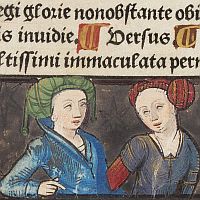 egi glorie nonobstante obi
is inuidie. Versus
ltissimi immaculata perm